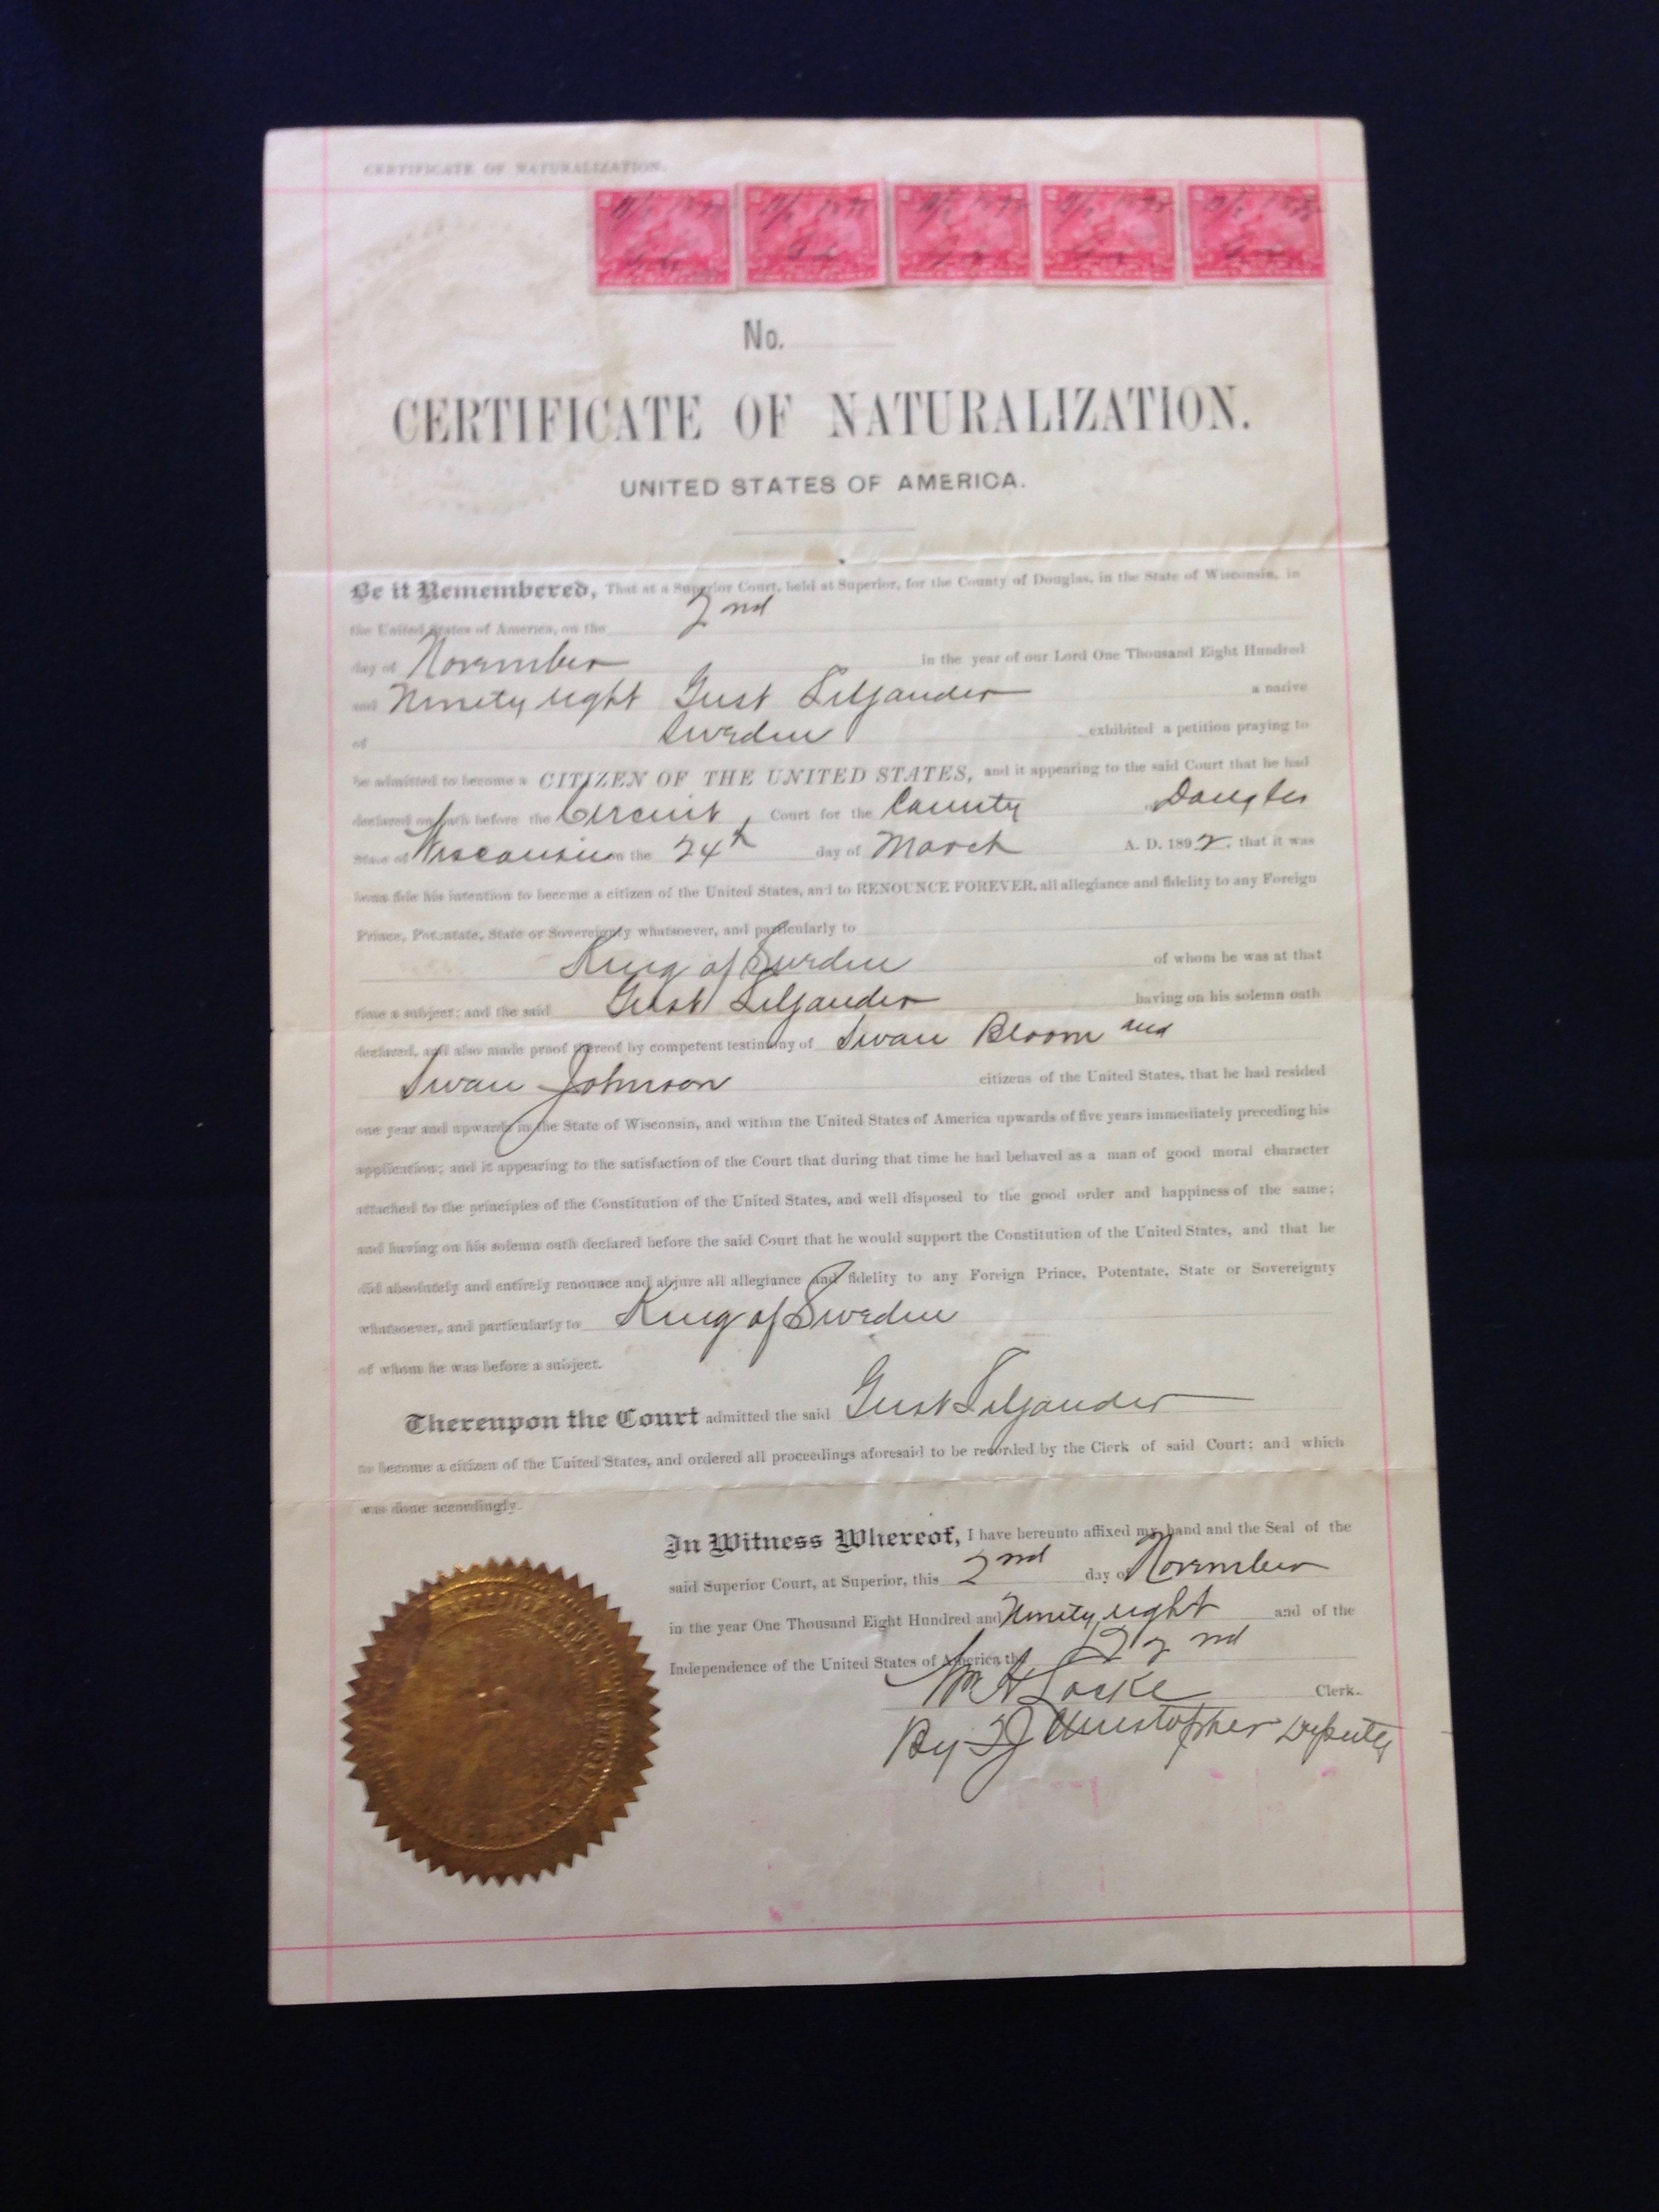 CERTIFICATE OF NATURALIZATION.
No.
CERTIFICATE OF NATURALIZATION.
UNITED STATES OF AMERICA.
Be it Remembered, That at a Superior Court, held at Superior, for the County of Douglas, in the State of Wisconsin, in
the United States of America, on the 2nd
day of November in the year of our Lord One Thousand Eight Hundred
and Ninety eight Gust Liljander a native
of Sweden exhibited a petition praying to
be admitted to become a CITIZEN OF THE UNITED STATES, and it appearing to the said Court that he had
declared on oath before the Circuit Court for the County Douglas
State of Wisconsin on the 24th day of March A. D. 1892. that it was
bona fide his intention to become a citizen of the United States, and to RENOUNCE FOREVER, all allegiance and fidelity to any Foreign
Prince, Potentate, State or Sovereignty whatsoever, and particularly to
King of Sweden of whom he was at that
time a subject; and the said Gust Liljander having on his solemn oath
declared, and also made proof thereof by competent testimony of Swan Bloom and
Swan Johnson citizens of the United States, that he had resided
one year and upwards in the State of Wisconsin, and within the United States of America upwards of five years immediately preceding his
application; and it appearing to the satisfaction of the Court that during that time he had behaved as a man of good moral character
attached to the principles of the Constitution of the United States, and well disposed to the good order and happiness of the same;
and having on his solemn oath declared before the said Court that he would support the Constitution of the United States, and that he
did absolutely and entirely renounce and abjure all allegiance and fidelity to any Foreign Prince, Potentate, State or Sovereignty
whatsoever, and particularly to King of Sweden
of whom he was before a subject.
Thereupon the Court admitted the said Gust Liljander
to become a citizen of the United States, and ordered all proceedings aforesaid to be recorded by the Clerk of said Court; and which
was done accordingly.
In Witness Whereof, I have hereunto affixed my hand and the Seal of the
said Superior Court, at Superior, this 2nd day of November
in the year One Thousand Eight Hundred and Ninety eight and of the
Independence of the United States of America the 122nd
Wm H Locke Clerk.
By J Christopher Deputy